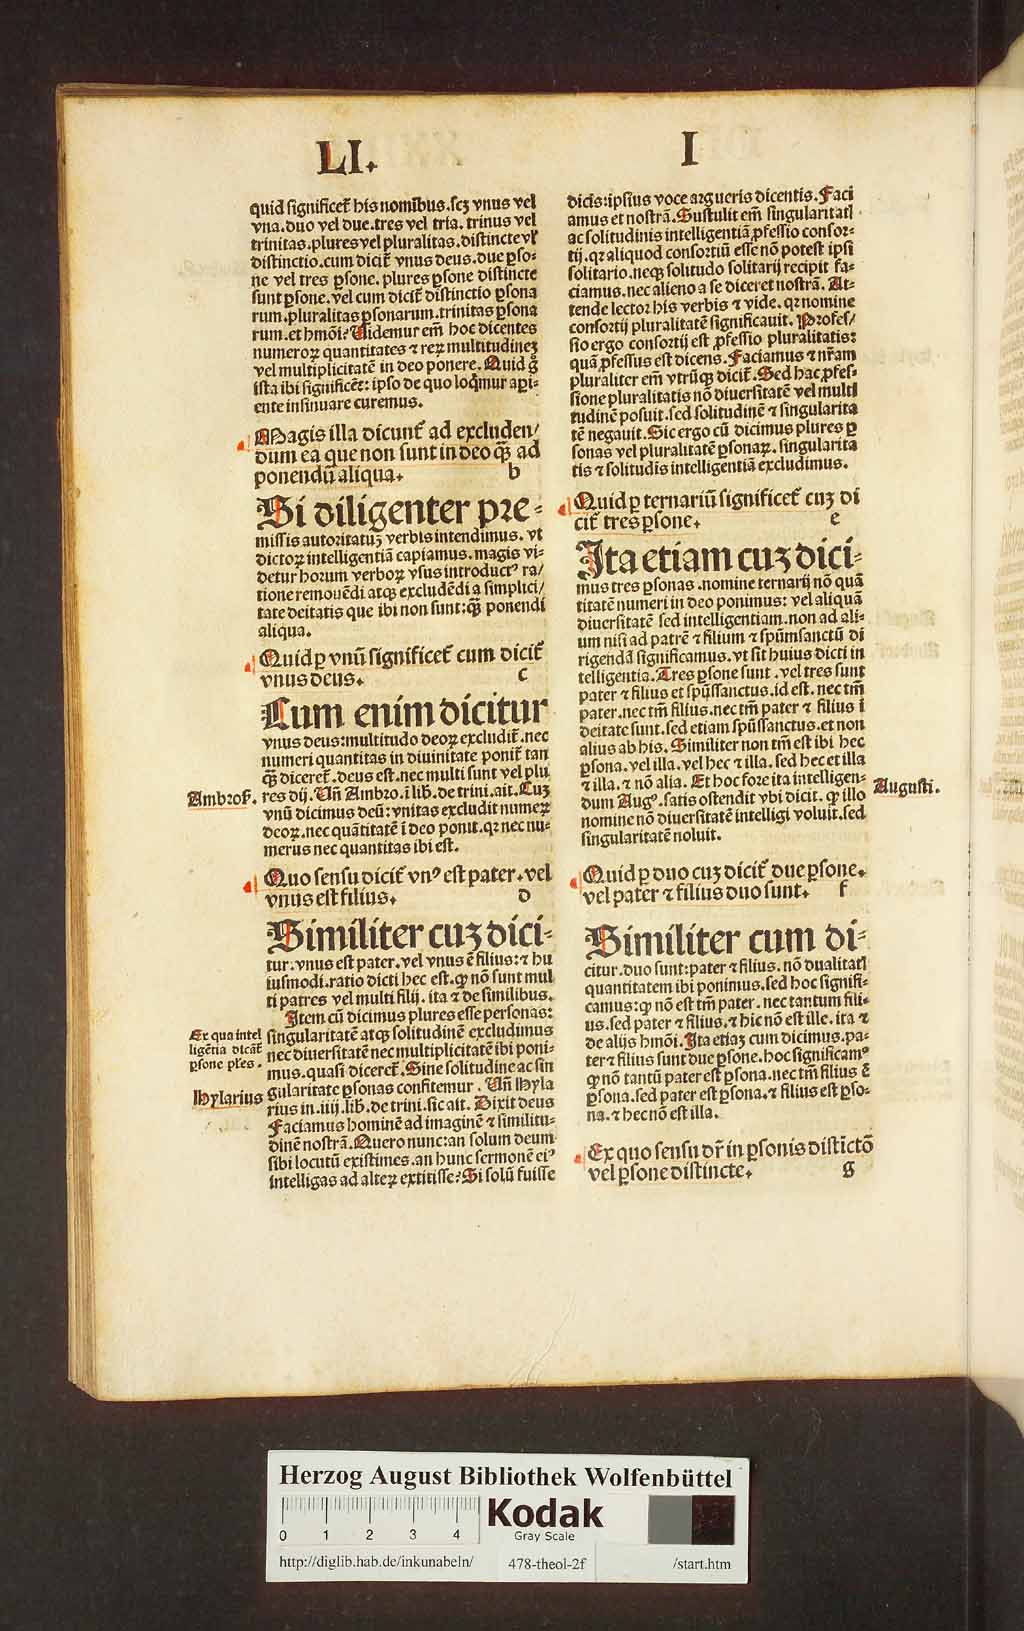 LI.
I
quid significet᷑ his nomĩbus.scꝫ vnus vel
vna.duo vel due.tres vel tria. trinus vel
trinitas.plures vel pluralitas.distincte vľ
distinctio.cum dicit᷑ vnus deus.due ꝑso-
ne vel tres ꝑsone. plures ꝑsone distincte
sunt ꝑsone. vel cum dicit᷑ distinctio ꝑsona
rum.pluralitas ꝑsonarum.trinitas ꝑsona
rum.et hmõi? Uidemur em̃ hoc dicentes
numeroꝝ quantitates ⁊ reꝝ multitudineꝫ
vel multiplicitatẽ in deo ponere. Quid g̊
ista ibi significẽt: ipso de quo loqͥmur aꝑi-
ente insinuare curemus.
Magis illa dicunt᷑ ad excluden/
dum ea que non sunt in deo qꝫ̃ ad
ponendũ aliqua.
b
Si diligenter pre-
missis autoritatuꝫ verbis intendimus. vt
dictoꝝ intelligentiã capiamus. magis vi-
detur horum verboꝝ vsus introductꝰ ra/
tione remouẽdi atqꝫ excludẽdi a simplici/
tate deitatis que ibi non sunt:qꝫ̃ ponendi
aliqua.
Quid ꝑ vnũ significet᷑ cum dicit᷑
vnus deus.
c
Cum enim dicitur
vnus deus:multitudo deoꝝ excludit᷑.nec
numeri quantitas in diuinitate ponit᷑ tan
qꝫ̃ diceret᷑.deus est.nec multi sunt vel plu
res dij. Uñ Ambro.ĩ lib.de trini.ait.Cuꝫ
vnũ dicimus deũ: vnitas excludit numeꝝ
deoꝝ.nec quãtitatẽ ĩ deo ponit.qꝛ nec nu-
merus nec quantitas ibi est.
Ambros.
Quo sensu dicit᷑ vnꝰ est pater.vel
vnus est filius.
d
Similiter cuꝫ dici-
tur.vnus est pater.vel vnus ẽ filius:⁊ hu
iusmodi.ratio dicti hec est.ꝙ nõ sunt mul
ti patres vel multi filij. ita ⁊ de similibus.
Item cũ dicimus plures esse personas:
singularitatẽ atqꝫ solitudinẽ excludimus
nec diuersitatẽ nec multiplicitatẽ ibi poni-
mus.quasi diceret᷑. Sine solitudine ac sin
gularitate ꝑsonas confitemur. Uñ Hyla
rius in.iiij.lib.de trini.sic ait. Dixit deus
Faciamus hominẽ ad imaginẽ ⁊ similitu-
dinẽ nostrã.Quero nunc:an solum deum
sibi locutũ existimes.an hunc sermonẽ eiꝰ
intelligas ad alteꝝ extitisse? Si solũ fuisse
Ex qua intel
ligẽtia dicãt᷑
ꝑsone pl̃es.
Hylarius
dicis:ipsius voce argueris dicentis. Faci
amus et nostrã.Sustulit em̃ singularitatĩ
ac solitudinis intelligentiã ꝓfessio consor-
tij.qꝛ aliquod consortiũ esse nõ potest ipsi
solitario.neqꝫ solitudo solitarij recipit fa-
ciamus.nec alieno a se diceret nostrã. At-
tende lector his verbis ⁊ vide. qꝛ nomine
consortij pluralitatẽ significauit. Profes/
sio ergo consortij est ꝓfessio pluralitatis:
quã ꝓfessus est dicens. Faciamus ⁊ nr̃am
pluraliter em̃ vtrũqꝫ dicit᷑.Sed hac ꝓfes-
sione pluralitatis nõ diuersitatẽ vel multi
tudinẽ posuit.sed solitudinẽ ⁊ singularita
tẽ negauit.Sic ergo cũ dicimus plures ꝑ
sonas vel pluralitatẽ ꝑsonaꝝ.singularita
tis ⁊ solitudis intelligentiã excludimus.
Quid ꝑ ternariũ significet᷑ cuꝫ di
cit᷑ tres ꝑsone.
e
Ita etiam cuꝫ dici-
mus tres ꝑsonas.nomine ternarij nõ quã
titatẽ numeri in deo ponimus: vel aliquã
diuersitatẽ sed intelligentiam.non ad ali-
um nisi ad patrẽ ⁊ filium ⁊ spũmsanctũ di
rigendã significamus.vt sit huius dicti in
telligentia.Tres ꝑsone sunt.vel tres sunt
pater ⁊ filius et spũssanctus.id est. nec tm̃
pater.nec tm̃ filius.nec tm̃ pater ⁊ filius ĩ
deitate sunt.sed etiam spũssanctus.et non
alius ab his. Similiter non tm̃ est ibi hec
ꝑsona.vel illa.vel hec ⁊ illa.sed hec et illa
⁊ illa.⁊ nõ alia. Et hoc fore ita intelligen-
dum Augꝰ.satis ostendit vbi dicit. ꝙ illo
nomine nõ diuersitatẽ intelligi voluit.sed
singularitatẽ noluit.
Augusti.
Quid ꝑ duo cuꝫ dicit᷑ due ꝑsone.
vel pater ⁊ filius duo sunt.
f
Similiter cum di-
citur.duo sunt:pater ⁊ filius.nõ dualitatĩ
quantitatem ibi ponimus.sed hoc signifi-
camus:ꝙ nõ est tm̃ pater. nec tantum fili-
us.sed pater ⁊ filius.⁊ hic nõ est ille. ita ⁊
de alijs hmõi.Ita etiaꝫ cum dicimus.pa-
ter ⁊ filius sunt due ꝑsone.hoc significamꝰ
ꝙ nõ tantũ pater est ꝑsona.nec tm̃ filius ẽ
ꝑsona.sed pater est ꝑsona.⁊ filius est ꝑso-
na.⁊ hec nõ est illa.
Ex quo sensu dr̃ in ꝑsonis distictõ
vel ꝑsone distincte.
g
Herzog August Bibliothek Wolfenbüttel
0 1 2 3 4
Kodak
Gray Scale
http://diglib.hab.de/inkunabeln/ 478-theol-2f /start.htm